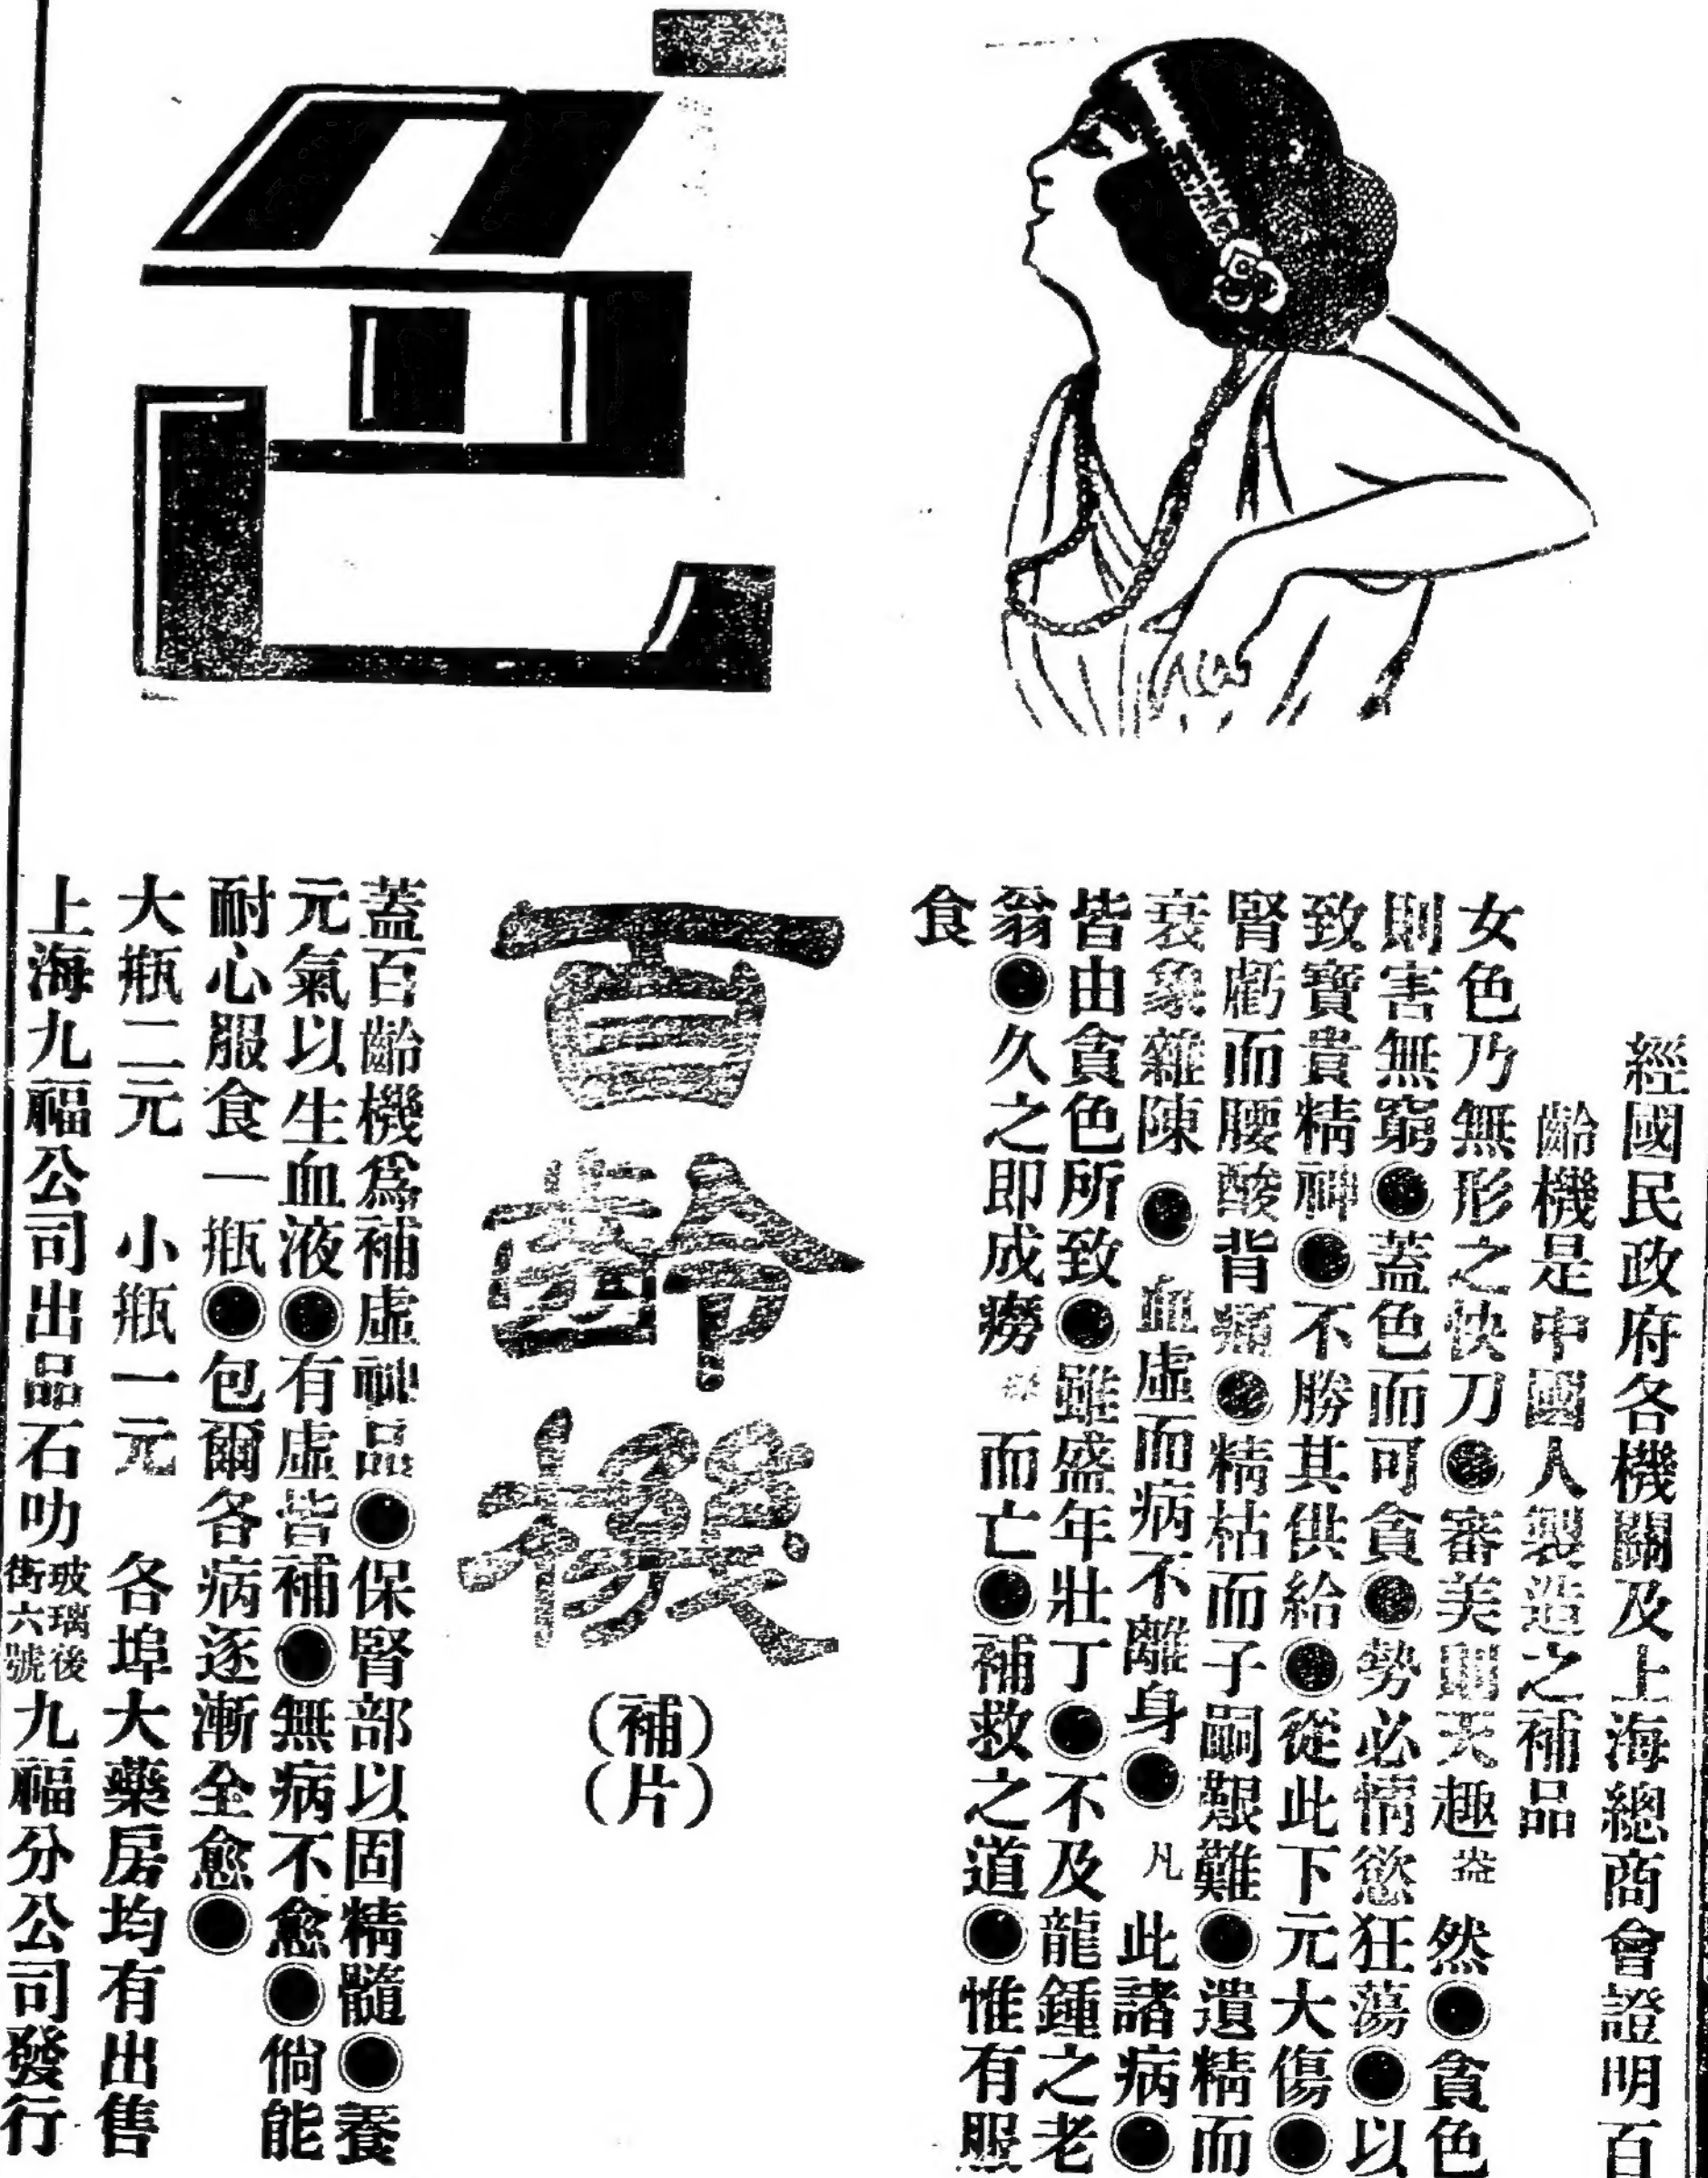 色
經國民政府各機關及上海總商會證明百
齡機是中國人製造之補品
女色乃無形之快刀●審美則天趣盎然●貪色
則害無窮●蓋色而可貪●勢必情慾狂蕩●以
致寶貴精神●不勝其供給●從此下元大傷●
腎虧而腰酸背痛●精枯而子嗣艱難●遺精而
衰象雜陳●血虛而病不離身●凡此諸病●
皆由貪色所致●雖盛年壯丁●不及龍鍾之老
翁●久之即成癆 而亡●補救之道●惟有服
食
百齡機
(補)(片)
蓋百齡機爲補虛神品●保腎部以固精髓●養
元氣以生血液●有虛皆補●無病不愈●倘能
耐心服食一瓶●包爾各病逐漸全愈●
大瓶二元 小瓶一元 各埠大藥房均有出售
上海九福公司出品石叻玻璃後街六號九福分公司發行